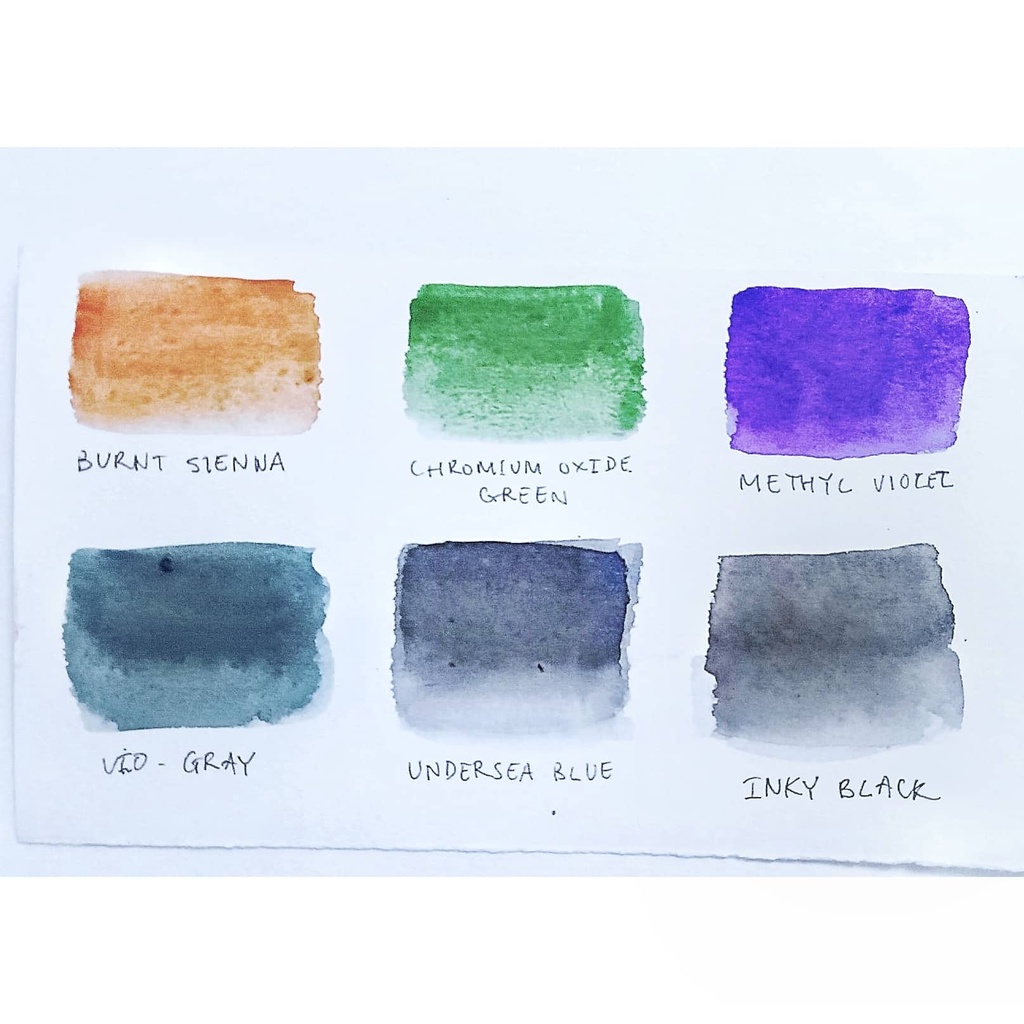 BURNT SIENNA
CHROMIUM OXIDE
GREEN
METHYL VIOLET
VIO - GRAY
UNDERSEA BLUE
INKY BLACK